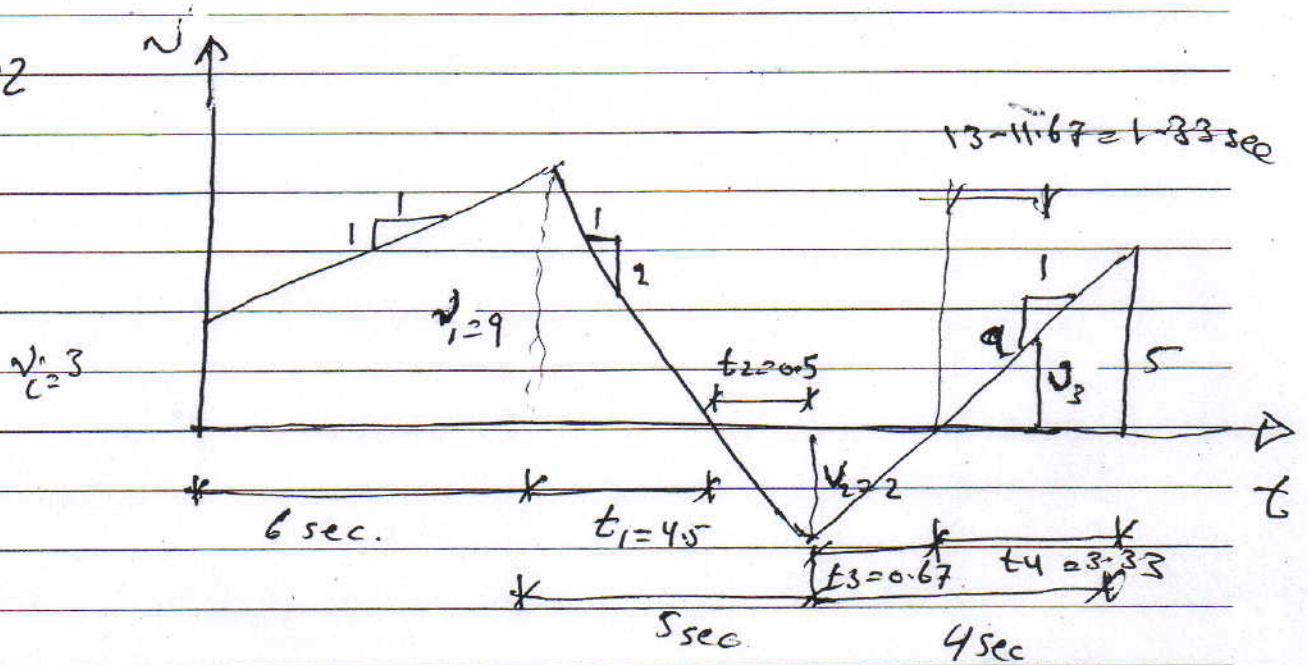 2
v
13-11.67=1.33 sec
1
1
1
2
1
a
v1=9
vi=3
t2=0.5
v3
5
v2=2
t
6 sec.
t1=4.5
t3=0.67
t4=3.33
5 sec
4 sec